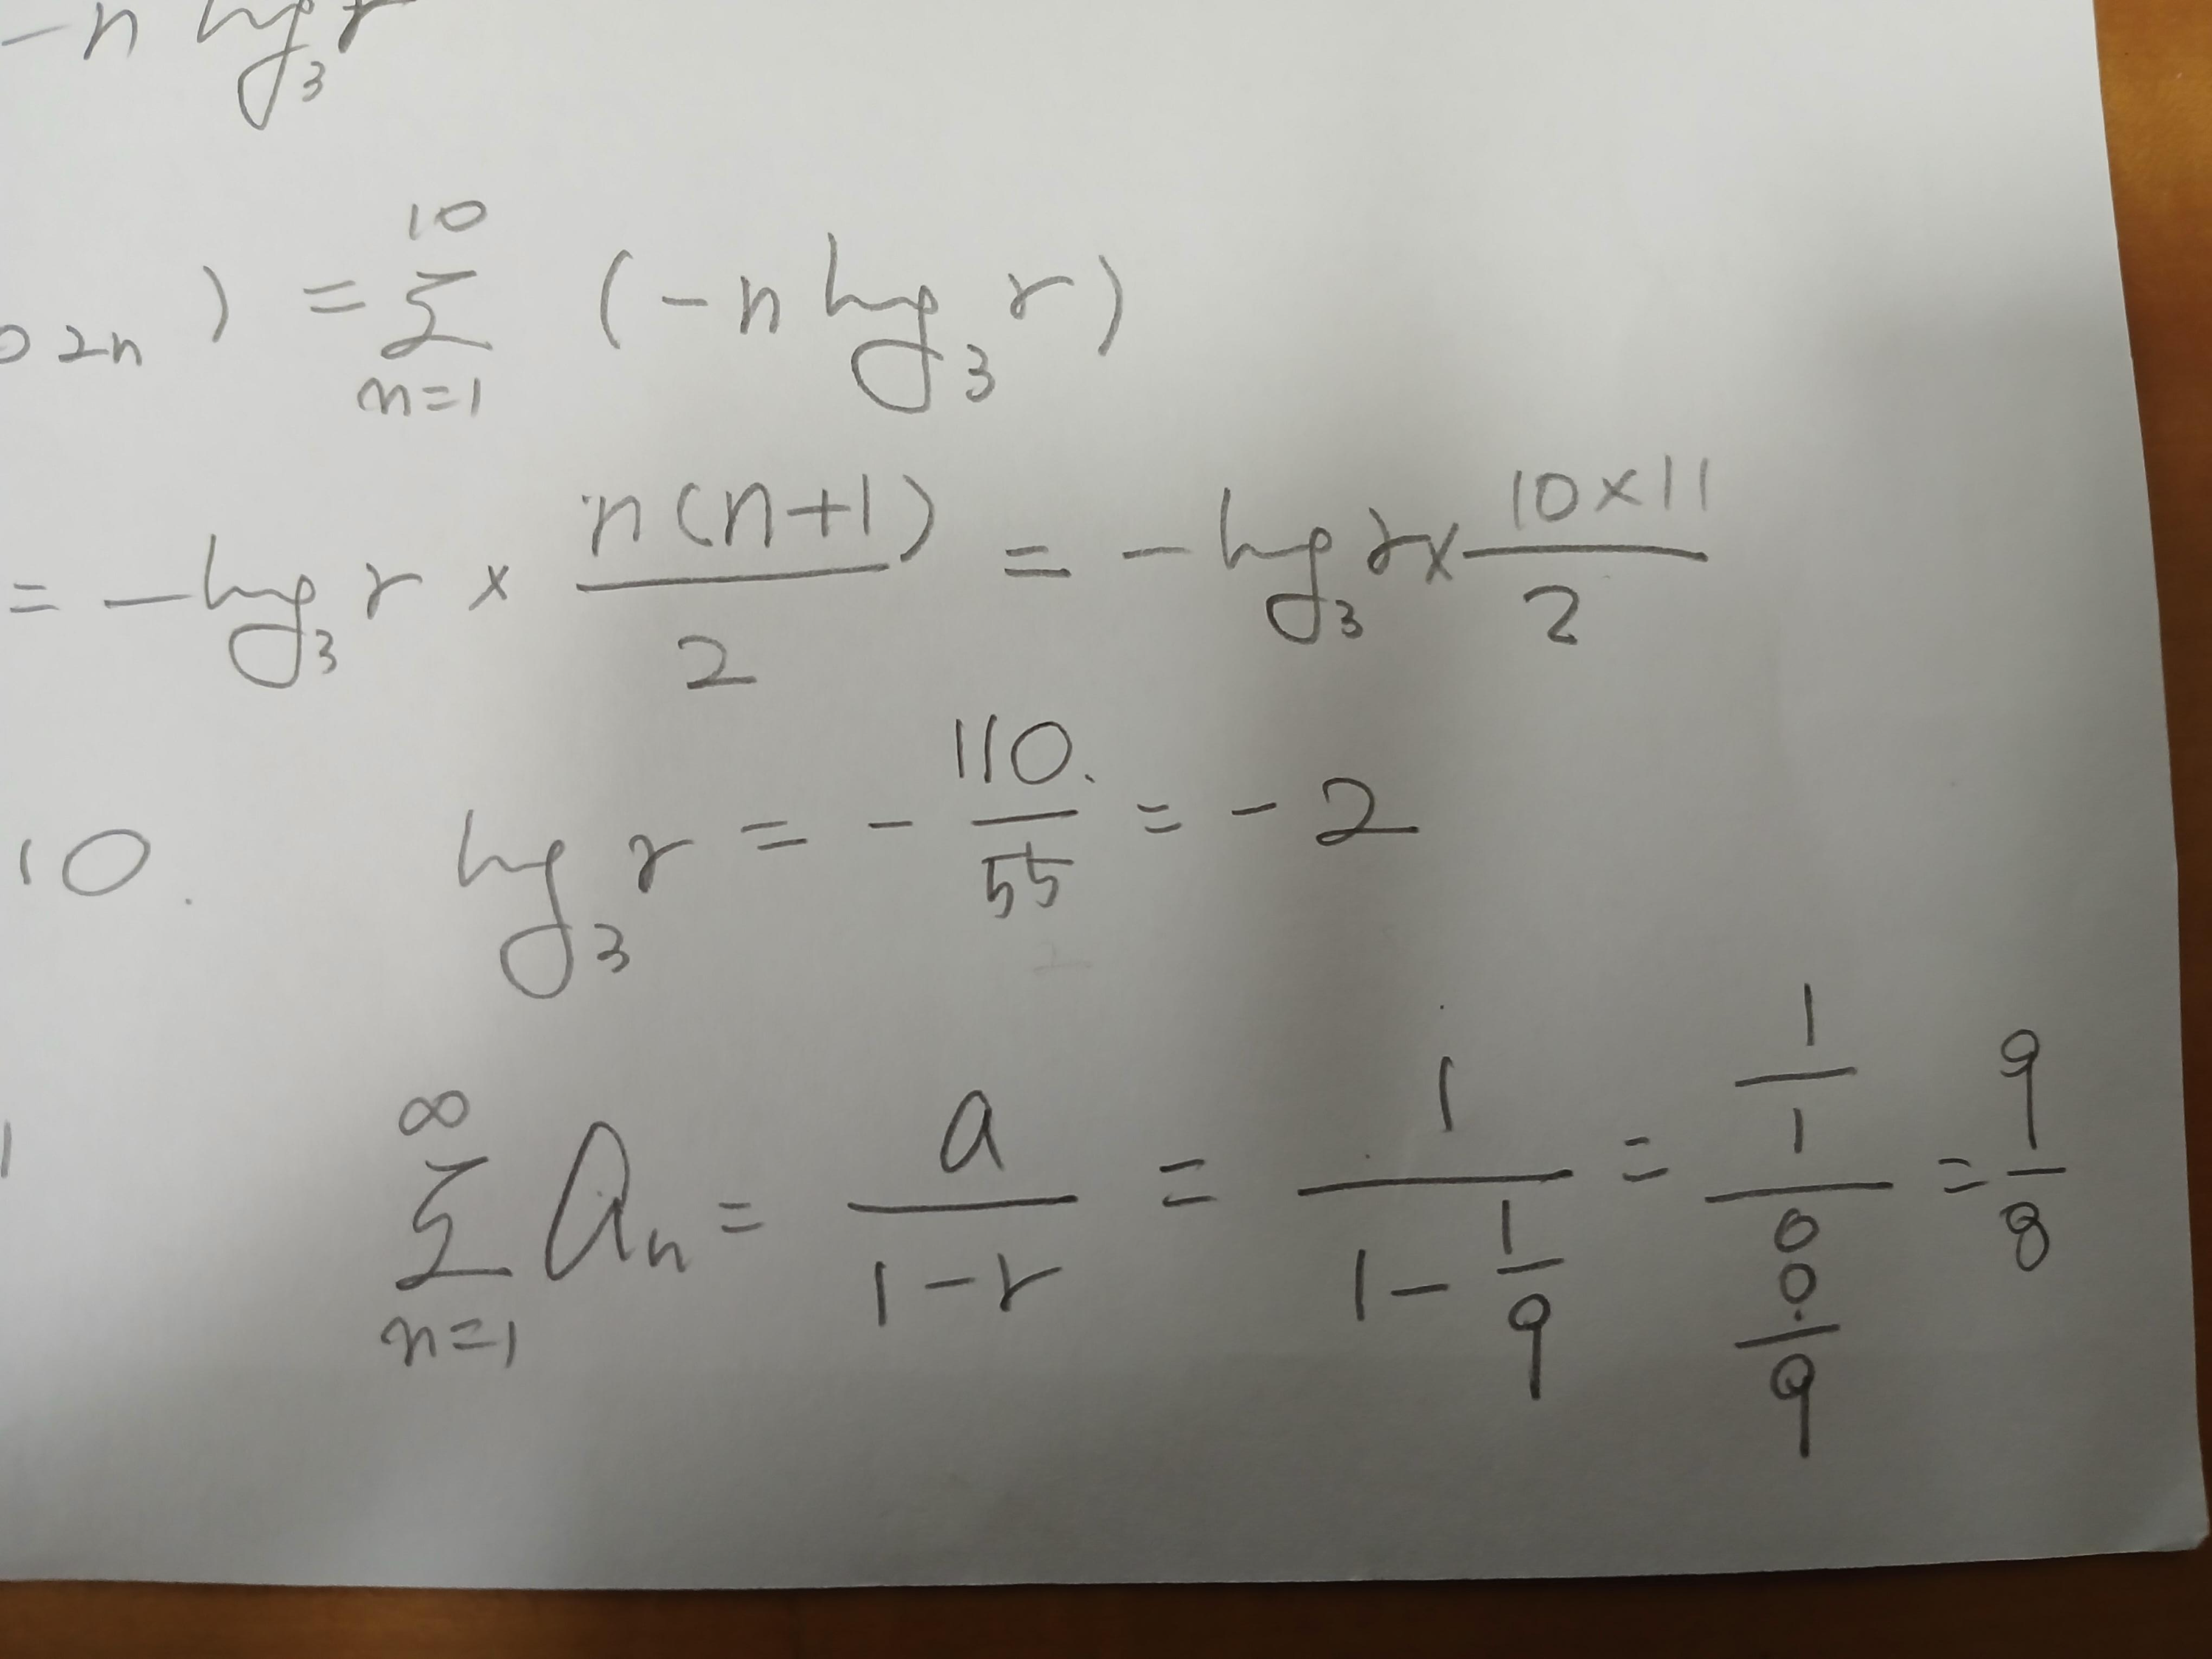 -n log₃ r
2n ) = Σ_{n=1}^{10} (-n log₃ r)
= -log₃ r × n(n+1)/2 = -log₃ r × (10×11)/2
10. log₃ r = - 110/55 = -2
Σ_{n=1}^{∞} aₙ = a/(1-r) = 1/(1-1/9) = (1/1)/(8/9) = 9/8